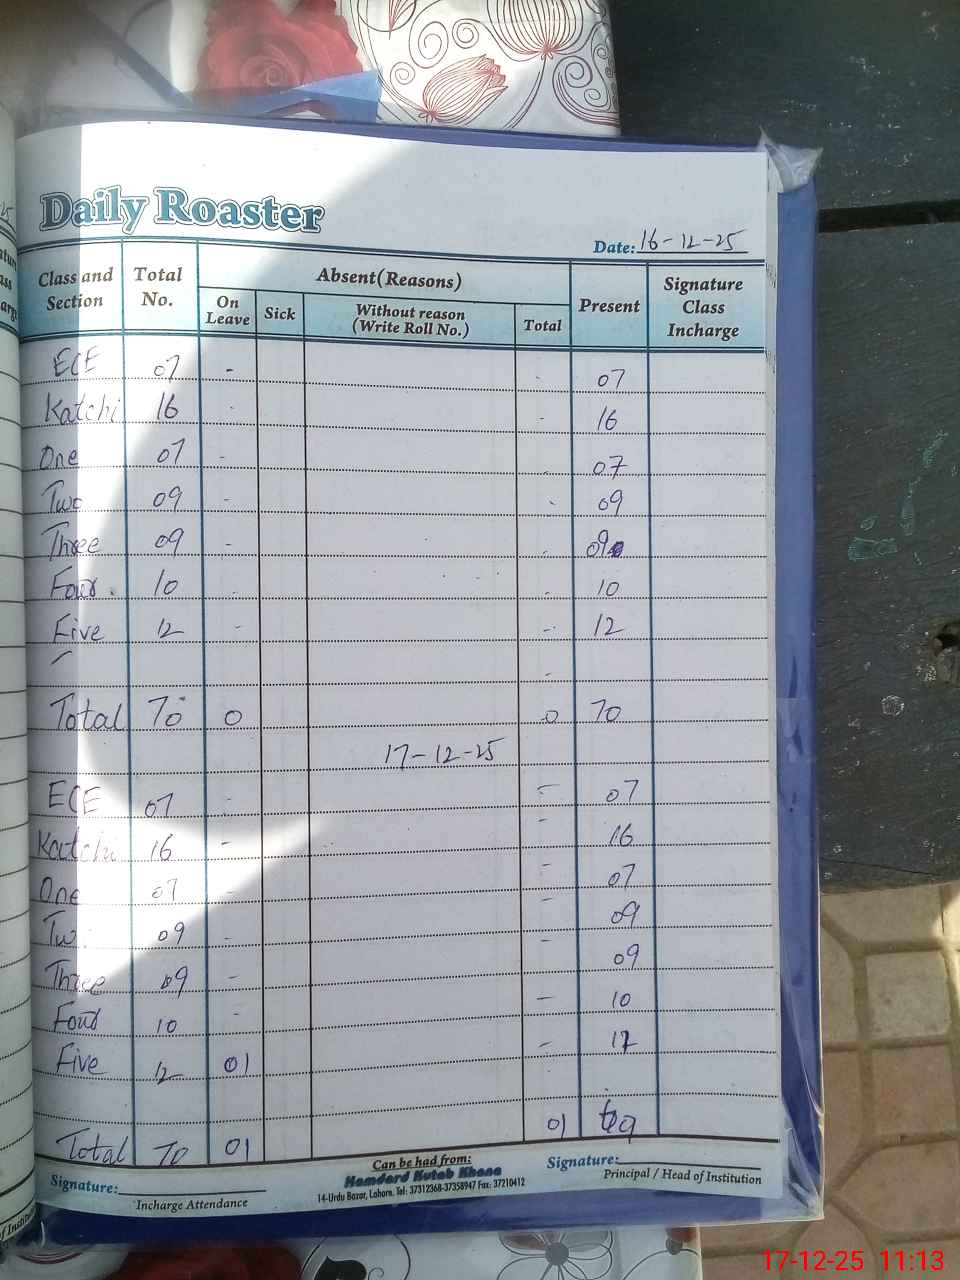 Daily Roaster
Date: 16-12-25
Class and Section Total No. Absent(Reasons) Present Signature Class Incharge
On Leave Sick Without reason (Write Roll No.) Total
ECE 07 - - 07
Katchi 16 - - 16
One 07 - - 07
Two 09 - - 09
Three 09 - - 09
Four 10 - - 10
Five 12 - - 12
Total 70 0 0 70
17-12-25
ECE 07 - - 07
Katchi 16 - - 16
One 07 - - 07
Tw 09 - - 09
Three 09 - - 09
Four 10 - - 10
Five 12 01 -
Total 70 01 01 69
Signature: Can be had from: Signature:
Incharge Attendance Hamdard Kutab Khana Principal / Head of Institution
14-Urdu Bazar, Lahore. Tel: 37312368-37358947 Fax: 37210412
17-12-25 11:13